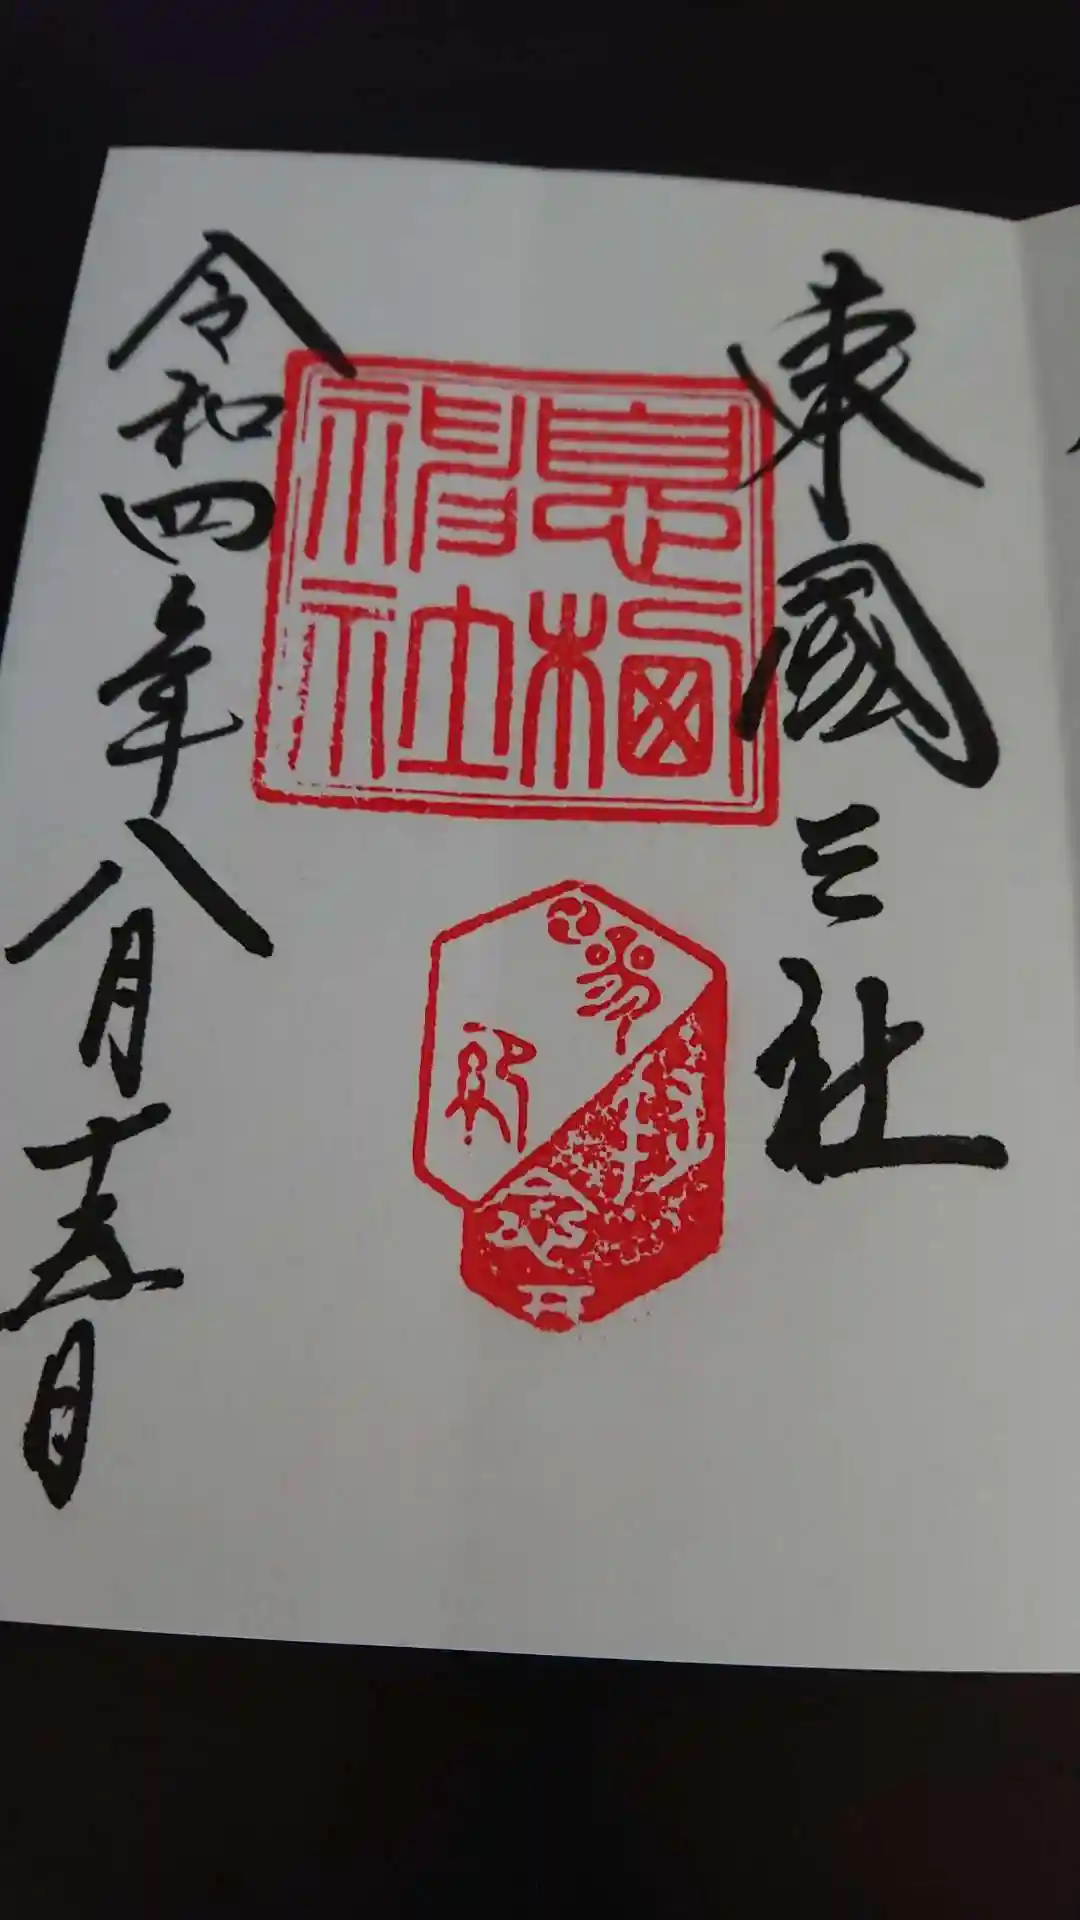 東國三社
息栖
神社
令和四年八月十五日